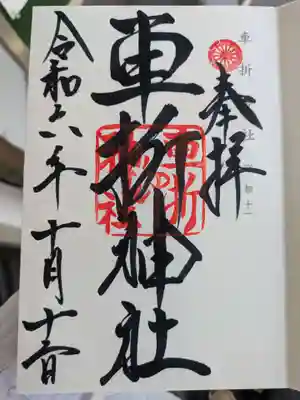 奉拝
車折神社
車折神社
令和六年十月十三日